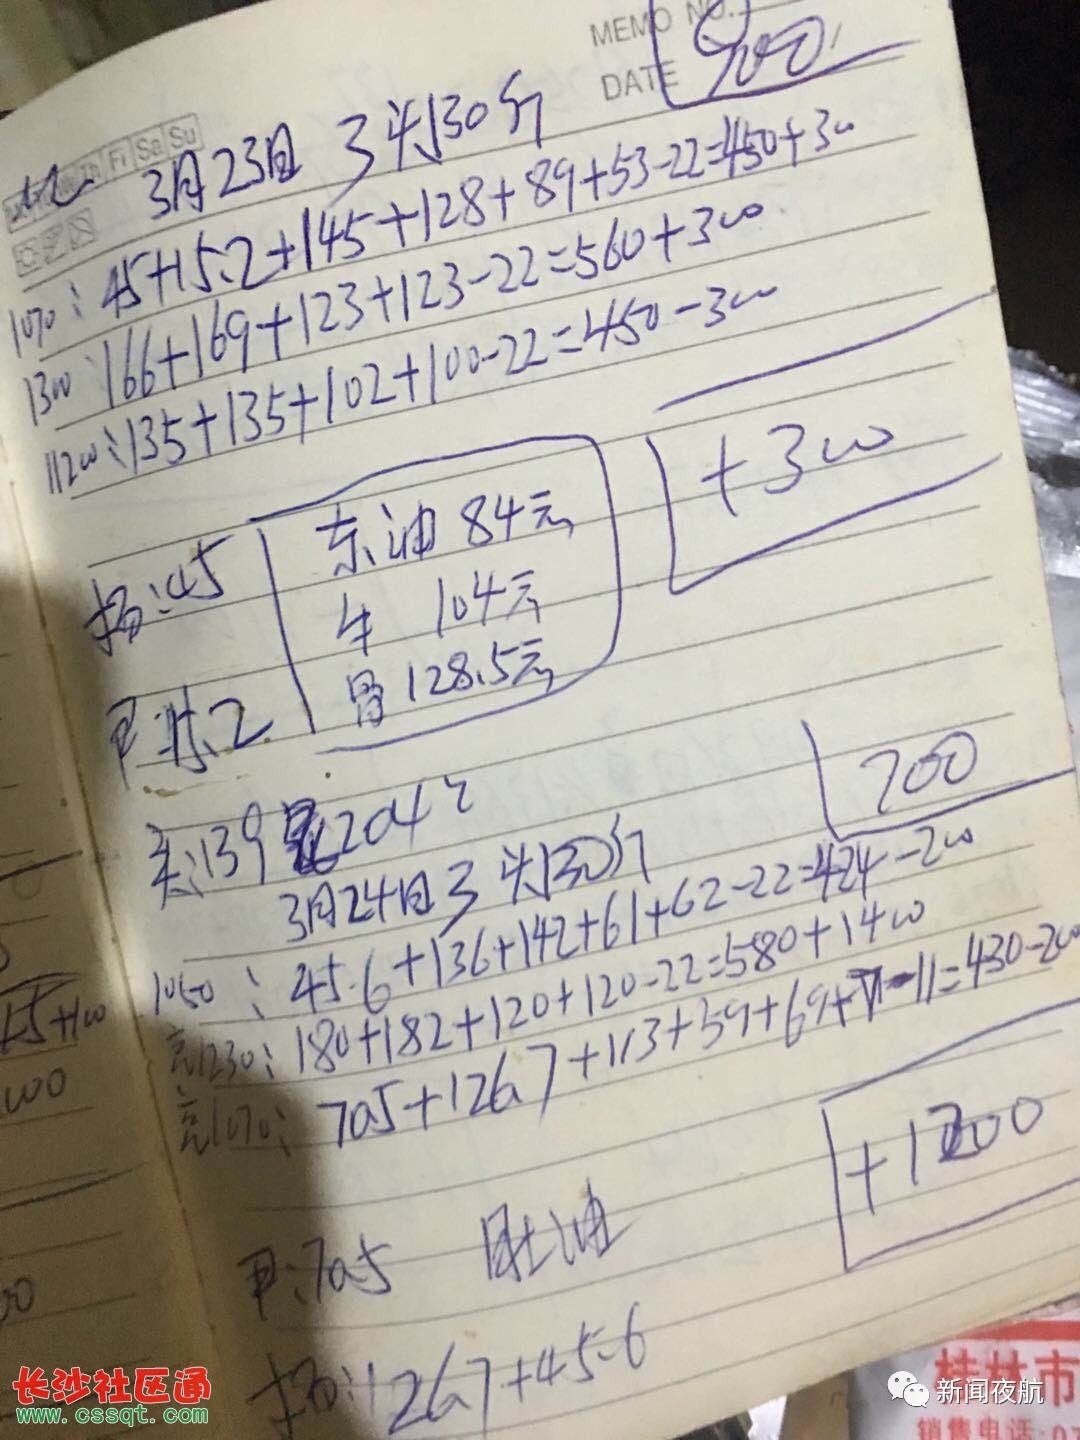 MEMO NO.
DATE
900
Fr Sa Su
3月23日 3头130斤
1070: 45+15.2+145+128+89+53-22=450+300
1300: 166+169+123+123-22=560+300
1120: 135+135+102+100-22=450-300
+300
杨:45
东油 84元
牛 104元
骨 128.5元
15.2
139 204
700
3月24日 3头130斤
1050: 45.6+136+142+61+62-22=424-200
1230: 180+182+120+120-22=580+1400
1070: 70.5+126.7+113+59+69+11-11=430-200
+1200
70.5 肚油
杨: 126.7+45.6
长沙社区通
www.cssqt.com
新闻夜航
桂林市
销售电话:07